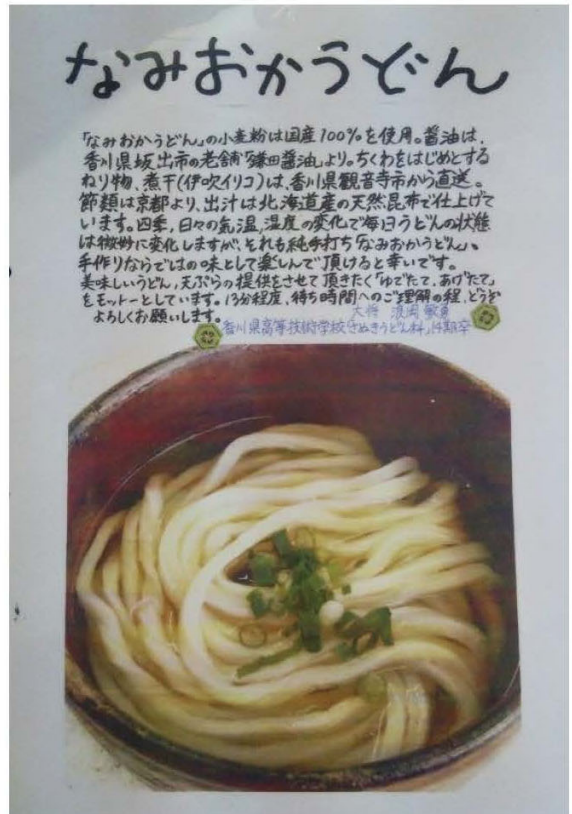 なみおかうどん
「なみおかうどん」の小麦粉は国産100%を使用。醤油は、
香川県坂出市の老舗「鎌田醤油」より。ちくわをはじめとする
ねり物、煮干(伊吹イリコ)は、香川県観音寺市から直送。
節類は京都より、出汁は北海道産の天然昆布で仕上げて
います。四季、日々の気温、湿度の変化で毎日うどんの状態
は微妙に変化しますが、それも純手打ち「なみおかうどん」、
手作りならではの味として楽しんで頂けると幸いです。
美味しいうどん、天ぷらの提供をさせて頂きたく「ゆでたて、あげたて」
をモットーとしています。13分程度、待ち時間へのご理解の程、どうぞ
よろしくお願いします。 大将 浪岡
香川県高等技術学校「さぬきうどん科」14期卒